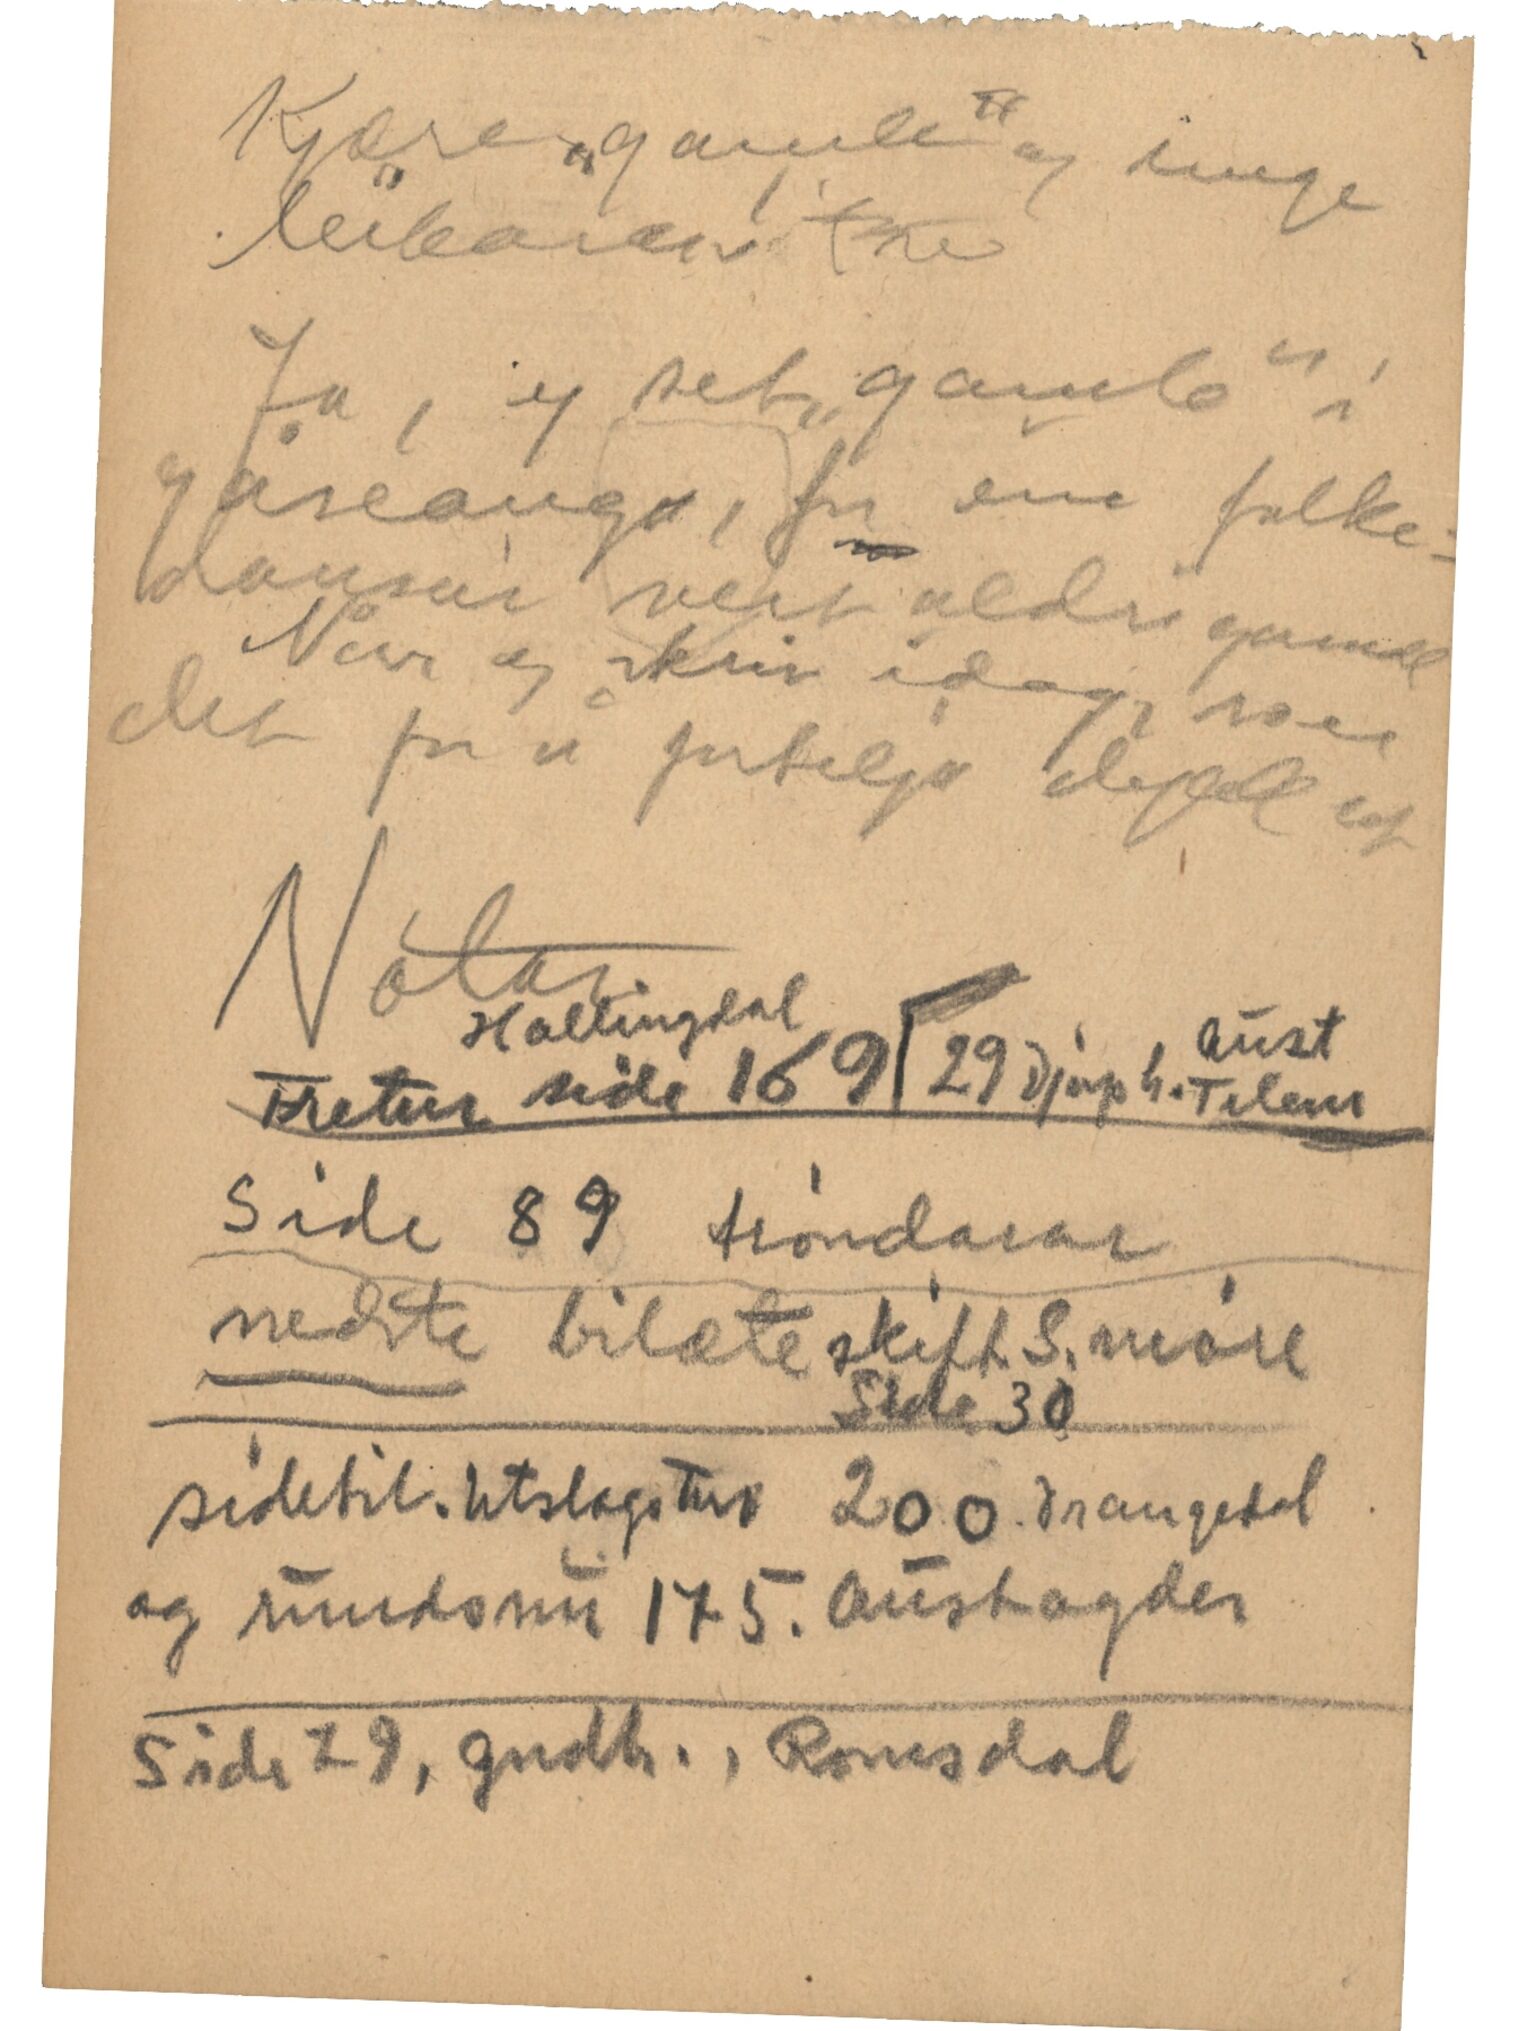 Kjære „gamle" og unge
leikarar
Ja, eg set „gamle" i
gåseauga, for ein folke-
dansar vert aldri gamal
Når eg skriv idag, så er
det for å fortelja dykk at
Notar
Hallingdal
Tretur side 169 29 Djup h. Aust
Telem
Side 89 tróndarar
nedste bilæte skift. S. móre
Side 30
sidetil. Utslagstur 200. Drangedal
og rundsnu 175. Austagder
Side 29, gudb., Romsdal